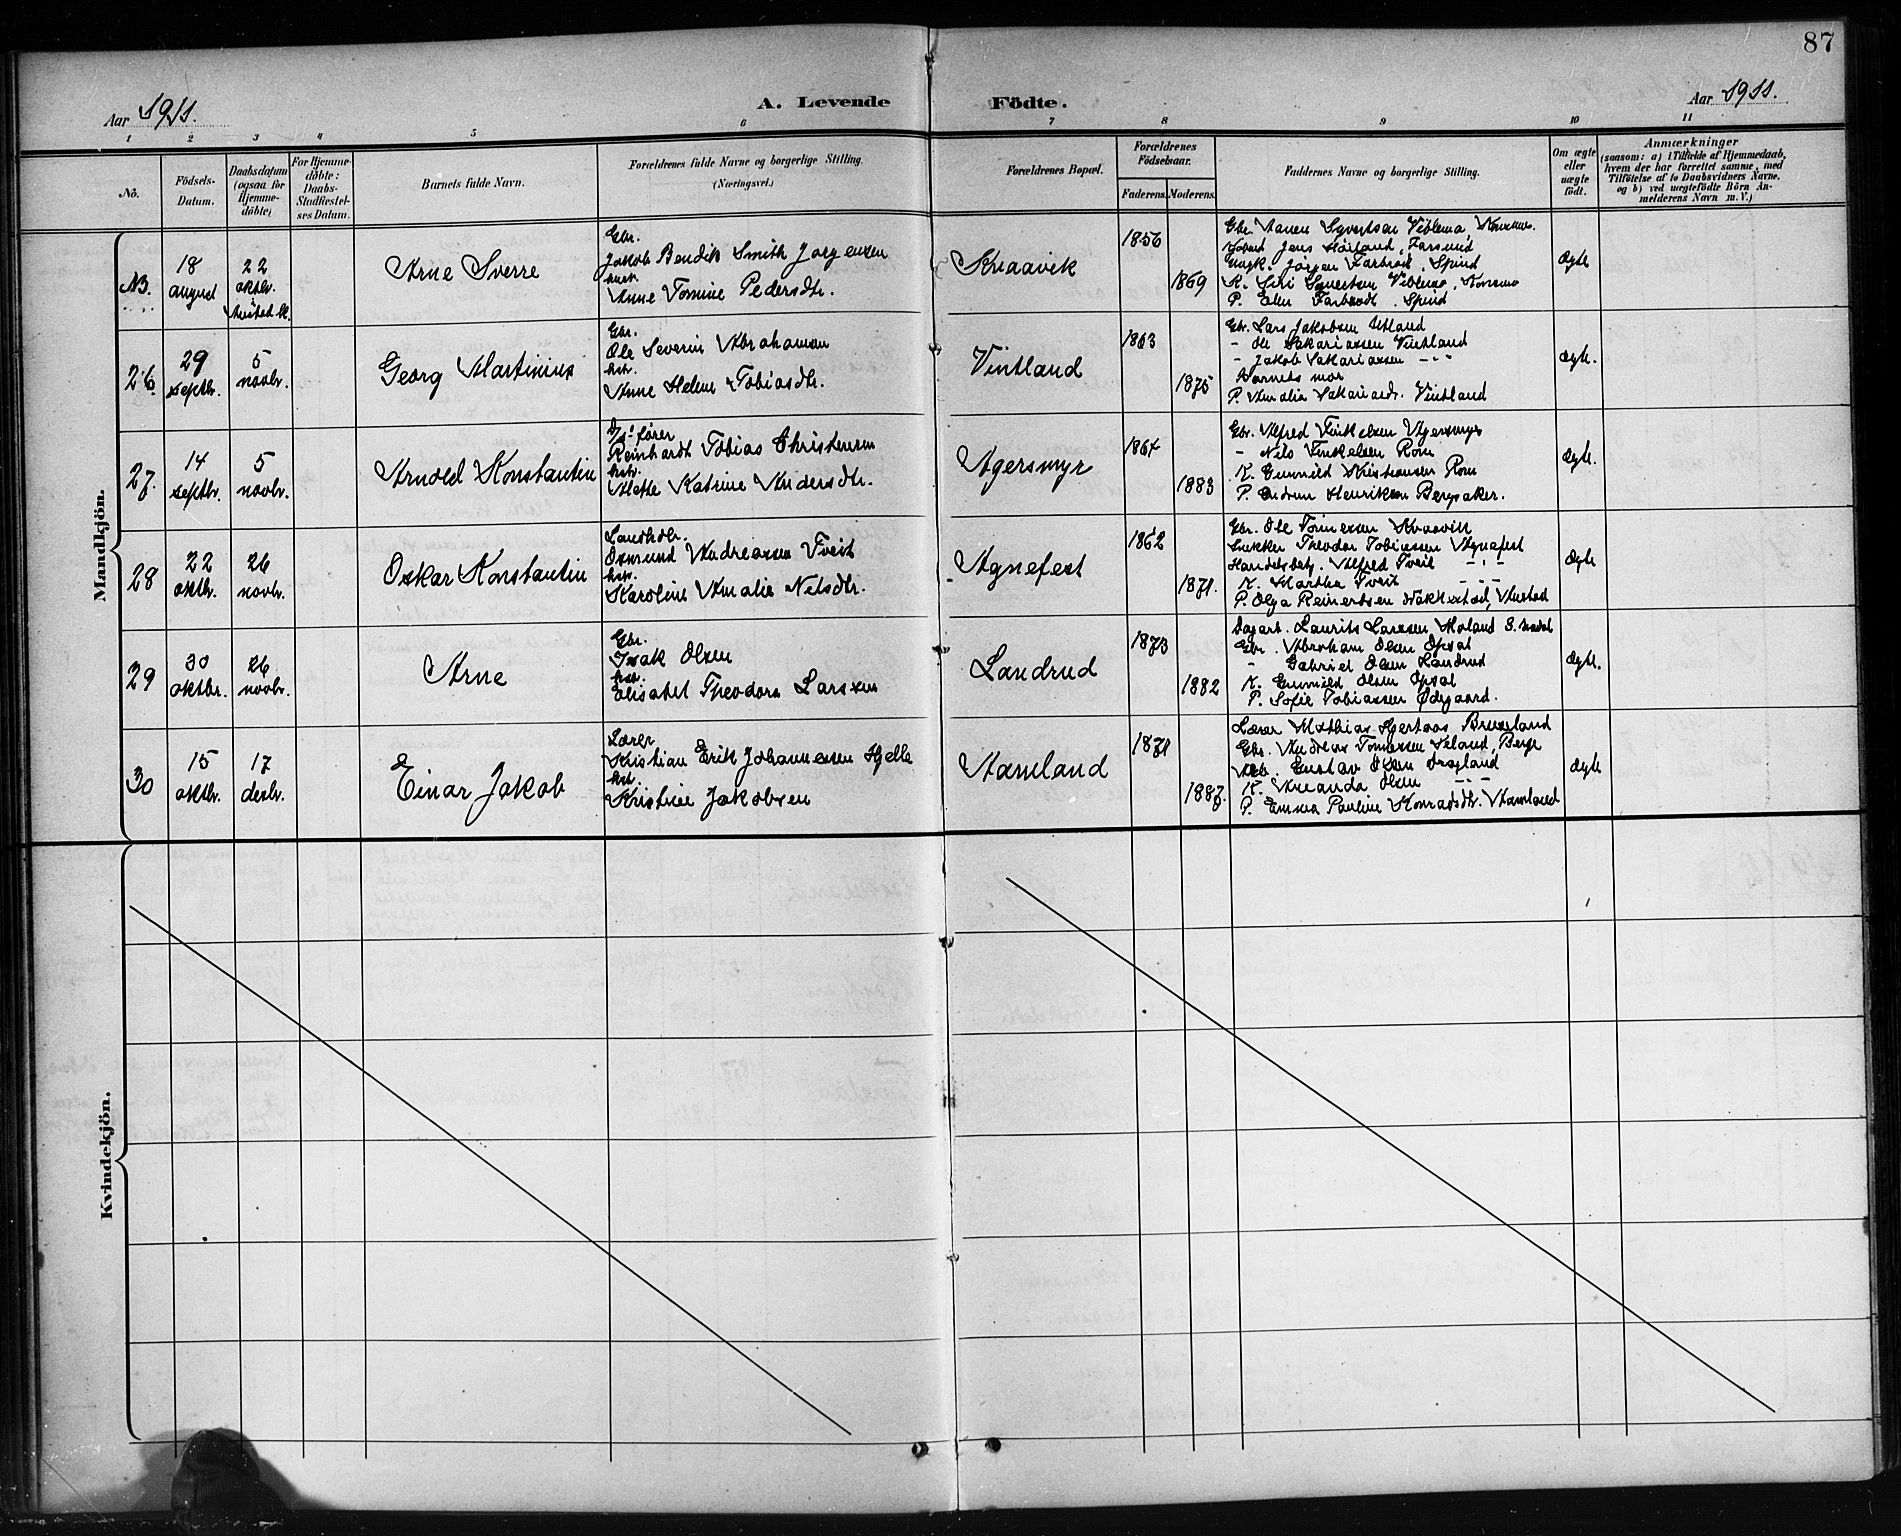 87
Aar 1911.
A. Levende Födte.
Aar 1911.
1 2 3 4 5 6 7 8 9 10 11
No.
Födsels-Datum.
Daabsdatum (ogsaa for Hjemme-döbte)
For Hjemme-döbte: Daabs-Stadfæstel-ses Datum.
Barnets fulde Navn.
Forældrenes fulde Navne og borgerlige Stilling.
(Næringsvei.)
Forældrenes Bopæl.
Forældrenes Födselsaar.
Faderens. Moderens.
Faddernes Navne og borgerlige Stilling.
Om ægte eller uægte født.
Anmærkninger
(saasom: a) i Tilfælde af Hjemmedaab,
hvem der har forrettet samme, med
Tilföielse af to Daabsvidners Navne,
og b) ved uægtefödte Börn An-
melderens Navn m. V.)
Mandkjön.
NB. 18 august 22 oktbr. Austad k.
Arne Sverre
Gbr.
Jakob Bendik Smith Jørgensen
hust.
Anne Tomine Pedersdtr.
Kvaavik
1856
1869
Gbr. Syvertsen Viblemo,
Jens Hörland, Farsund
Ungk. Jörgen Farbrodt, Spind
K. Siri Syvertsen Viblemo,
P. Elen Farbrodt, Spind
Ægte
26. 29 septbr. 5 novbr.
Georg Martinius
Gbr.
Ole Severin Abrahamsen
hst.
Anne Helene Tobiasdtr.
Vintland
1863
1875
Gbr. Lars Jakobsen Utland
- Ole Sakariassen Vintland
- Jakob Sakariassen - " -
Barnets mor
P. Amalia Sakariasdr. Vintland
Ægte.
27. 14 septbr. 5 novbr.
Arnold Konstantin
D/s' fører
Reinhardt Tobias Christensen
hst.
Mette Katrine Andersdtr.
Agersmyr
1864
1883
Gbr. Alfred Finkelsen Agersmyr
- Nils Finkelsen Rom
K. Gunnild Kristiansen Rom
P. Gudrun Henriksen Bergsaker.
Ægte.
28 22 oktbr. 26 novbr.
Oskar Konstantin
Landhdlr.
Osmund Andreassen Tveit
hst.
Karoline Amalie Nelsdtr.
Agnefest
1862
1871.
Gbr. Ole Tønnessen Kvaavik
Snekker Theodor Tobiassen Agnefest
Handelsbetj. Alfred Tveit - " -
K. Martha Tveit - " -
P. Olga Reinertsen Austad
Ægte
29 30 oktbr. 26 novbr.
Arne
Gbr.
Isak Olsen
hst.
Elisabet Theodora Larssen
Landrud
1873
1882
Dagarb. Laurits Larssen Moland
Gbr. Abraham Olsen Opsal
- Gabriel Olsen Landrud
K. Gunnild Olsen Opsal
P. Sofie Tobiassen Ødegaard.
Ægte.
30 15 oktbr. 17 desbr.
Einar Jakob
Lærer
Kristian Erik Johannessen Hjelle
hst.
Kristine Jakobsen
Aamland
1871
1887.
Lærer Mathias Hjertaas
Gbr. Andreas Tønnessen
Gustav Olsen Dragland
K. Amanda Olsen - " -
P. Emma Pauline Konradsdtr. Aamland
Ægte
Kvindekjön.